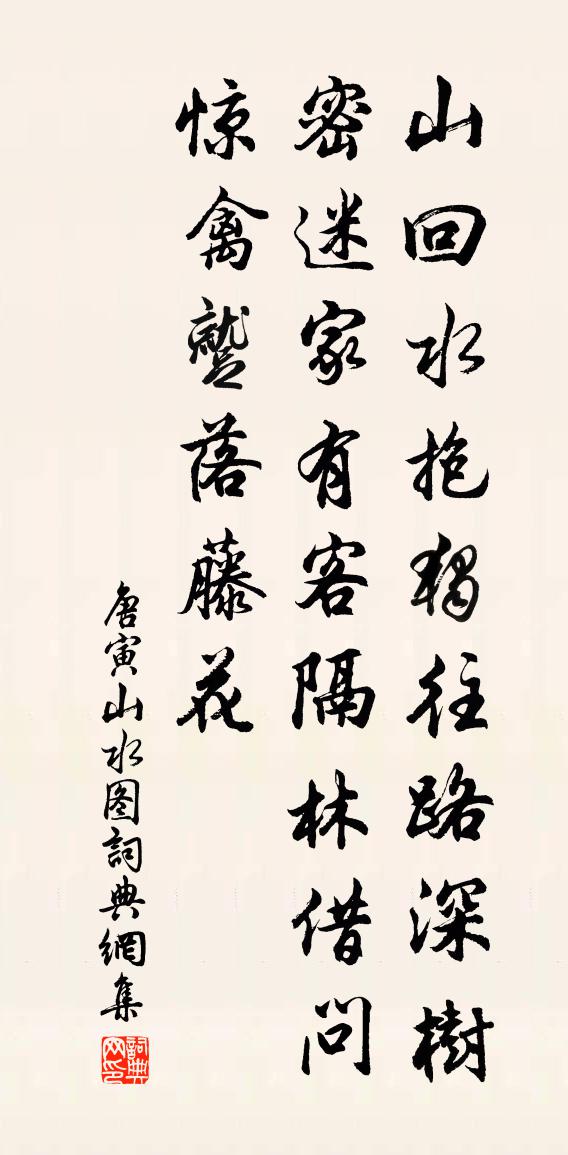 山回水抱獨往路深樹
密迷家有客隔林借问
惊禽蹵落藤花
唐寅山水图詞典網集
詞典网印